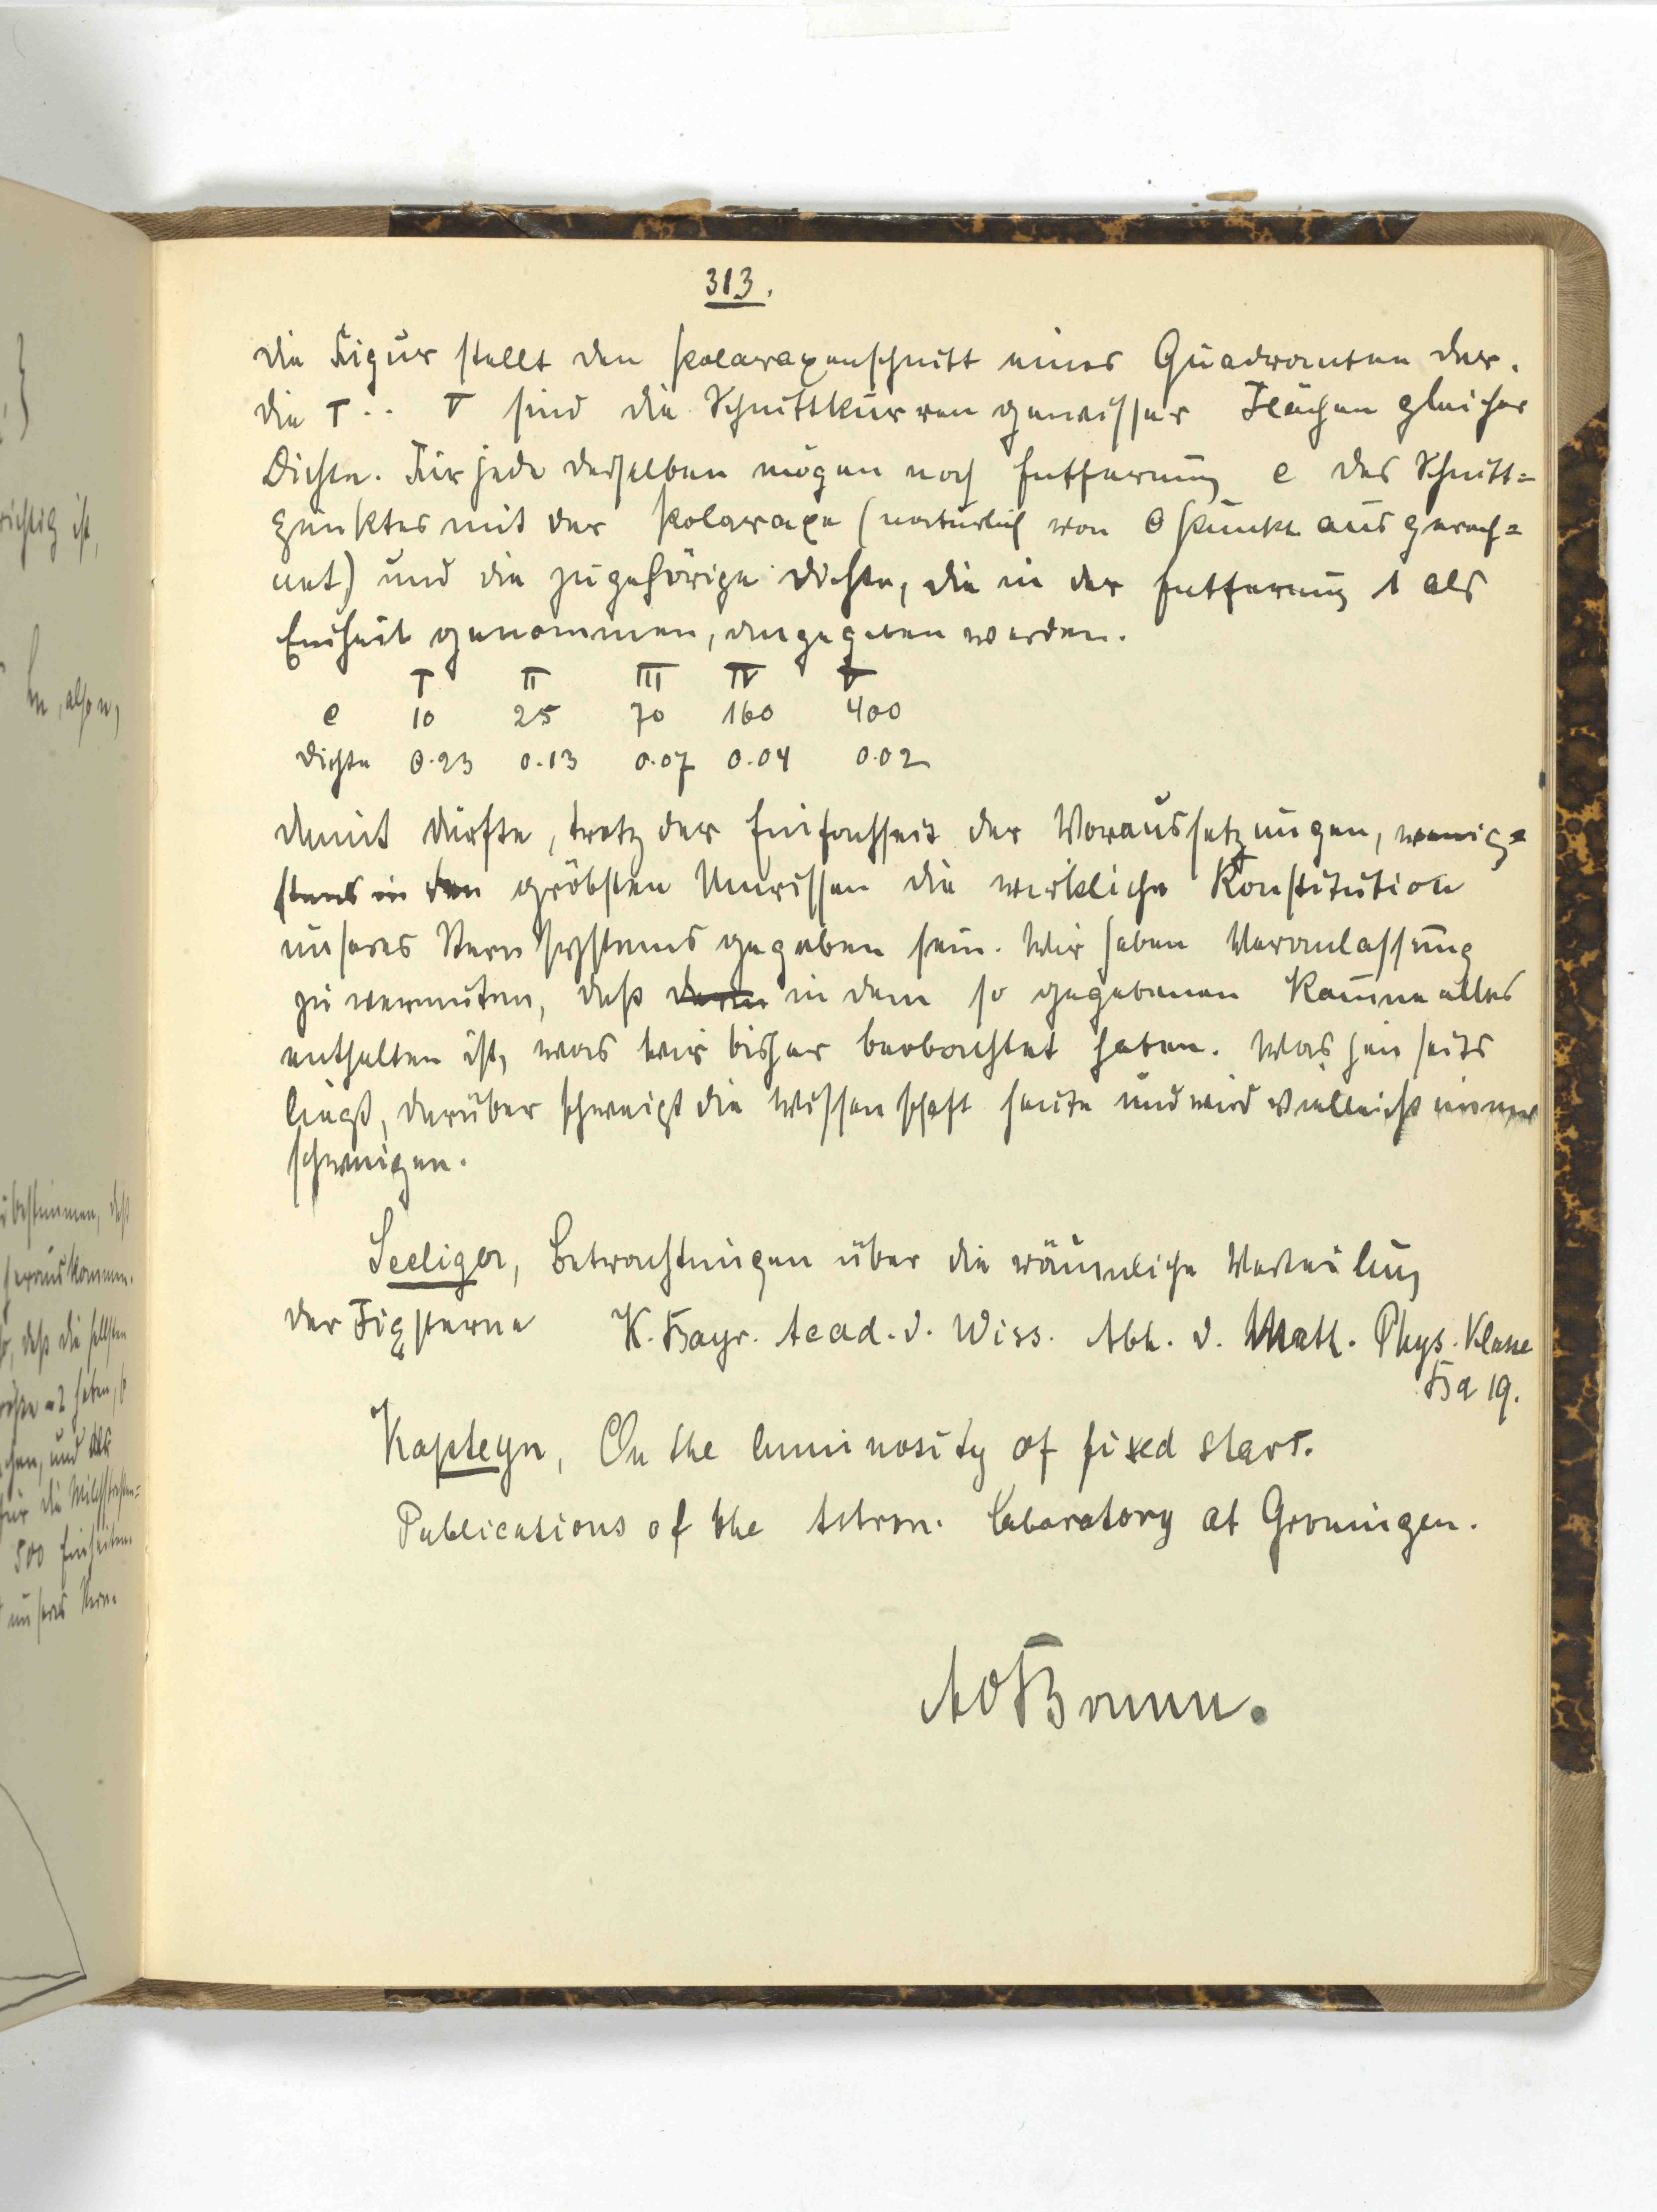 313.
Die Figur stellt den Polaraxenschnitt eines Quadranten dar.
Die I .. V sind die Schnittkurven gewisser Flächen gleicher
Dichte. Für jede derselben mögen noch Entfernung ρ des Schnitt=
punktes mit der Polaraxe (natürlich von 0 Punkt aus gerech=
net) und die zugehörige Dichte, die in der Entfernung 1 als
Einheit genommen, angegeben werden.
I II III IV V
ρ 10 25 70 160 400
Dichte 0.23 0.13 0.07 0.04 0.02
Damit dürfte, trotz der Einfachheit der Voraussetzungen, wenig=
stens in den gröbsten Umrissen die wirkliche Konstitution
unseres Sternsystems gegeben sein. Wir haben Veranlassung
zu vermuten, daß in dem so gegebenen Raume alles
enthalten ist, was wir bisher beobachtet haben. Was jenseits
liegt, darüber schweigt die Wissenschaft heute und wird vielleicht immer
schweigen.
Seeliger, Betrachtungen über die räumliche Verteilung
der Fixsterne K. Bayr. Acad. d. Wiss. Abh. d. Math. Phys. Klasse
Bd 19.
Kapteyn, On the luminosity of fixed stars.
Publications of the Astron. Laboratory at Groningen.
richtig ist,
zu bestimmen, daß
herauskommen.
so, daß die hellsten
für die Milchstraßen=
500 Einheiten.
unseres Stern=